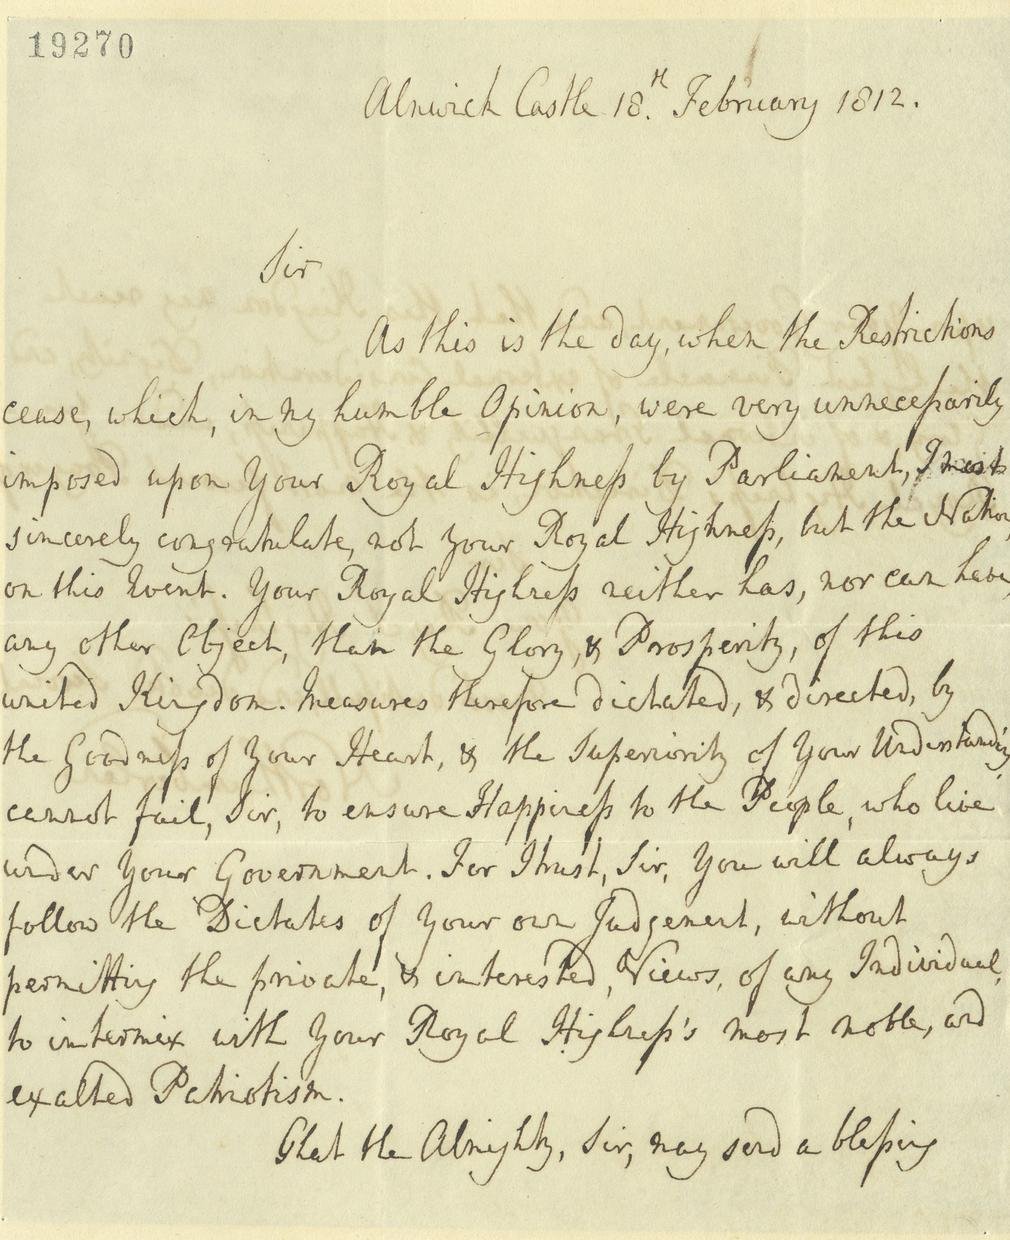 19270
Alnwick Castle 18.th February 1812.
Sir
As this is the day, when the Restrictions
cease, which, in my humble Opinion, were very unnecessarily
imposed upon Your Royal Highness by Parliament, I most
sincerely congratulate, not your Royal Highness, but the Nation,
on this Event. Your Royal Highness neither has, nor can have,
any other Object, than the Glory, & Prosperity, of this
united Kingdom. Measures therefore dictated, & directed, by
the Goodness of Your Heart, & the Superiority of Your Understanding,
cannot fail, Sir, to ensure Happiness to the People, who live
under Your Government. For I trust, Sir, You will always
follow the Dictates of Your own Judgement, without
permitting the private, & interested, Views, of any Individual,
to intermix with Your Royal Highness's most noble, and
exalted Patriotism.
That the Almighty, Sir, may send a blessing